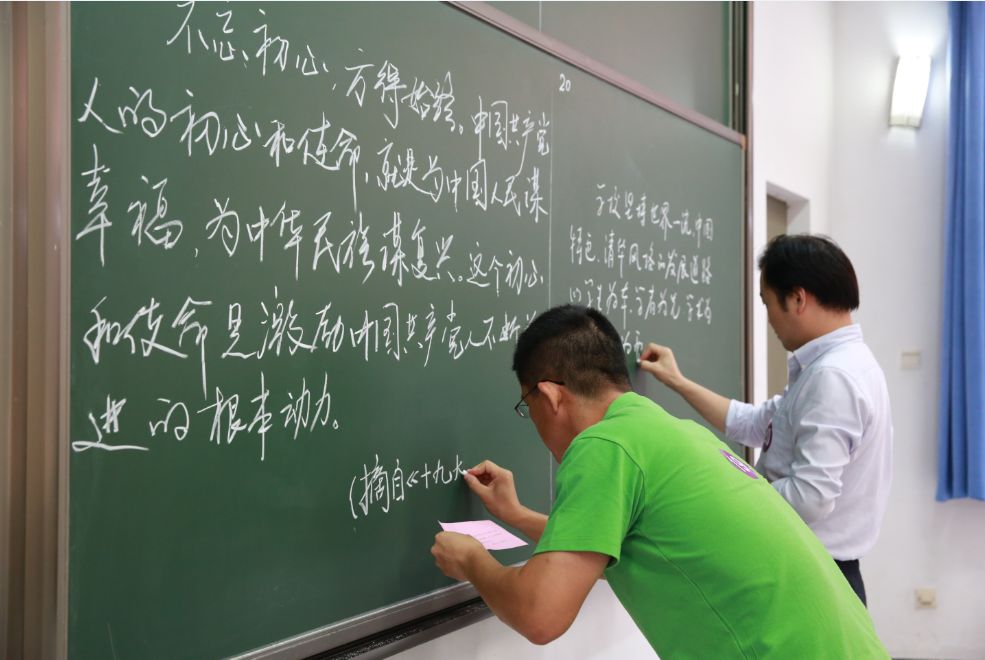 不忘初心,方得始终。中国共产党
人的初心和使命,就是为中国人民谋
幸福,为中华民族谋复兴。这个初心
和使命是激励中国共产党人不断
进的根本动力。
(摘自《十九大
20
学校坚持世界一流、中国
特色、清华风格的发展道路
以学生为本、学者为先、学术为